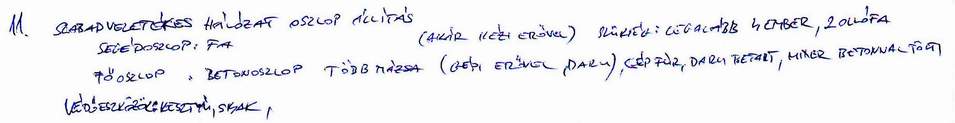 11. SZABADVEZETÉKES HÁLÓZAT OSZLOP ÁLLÍTÁS
SEGÉDOSZLOP: FA (AKÁR KÉZI ERŐVEL) SZÜKSÉG: LEGALÁBB 4 EMBER, 2 OLLÓFA
FŐOSZLOP, BETONOSZLOP TÖBB MÁZSA (GÉPI ERŐVEL, DARU), GÉP FÚR, DARU BETART, MIXER BETONNAL TÖLTI
VÉDŐESZKÖZÖK: KESZTYŰ, SISAK,